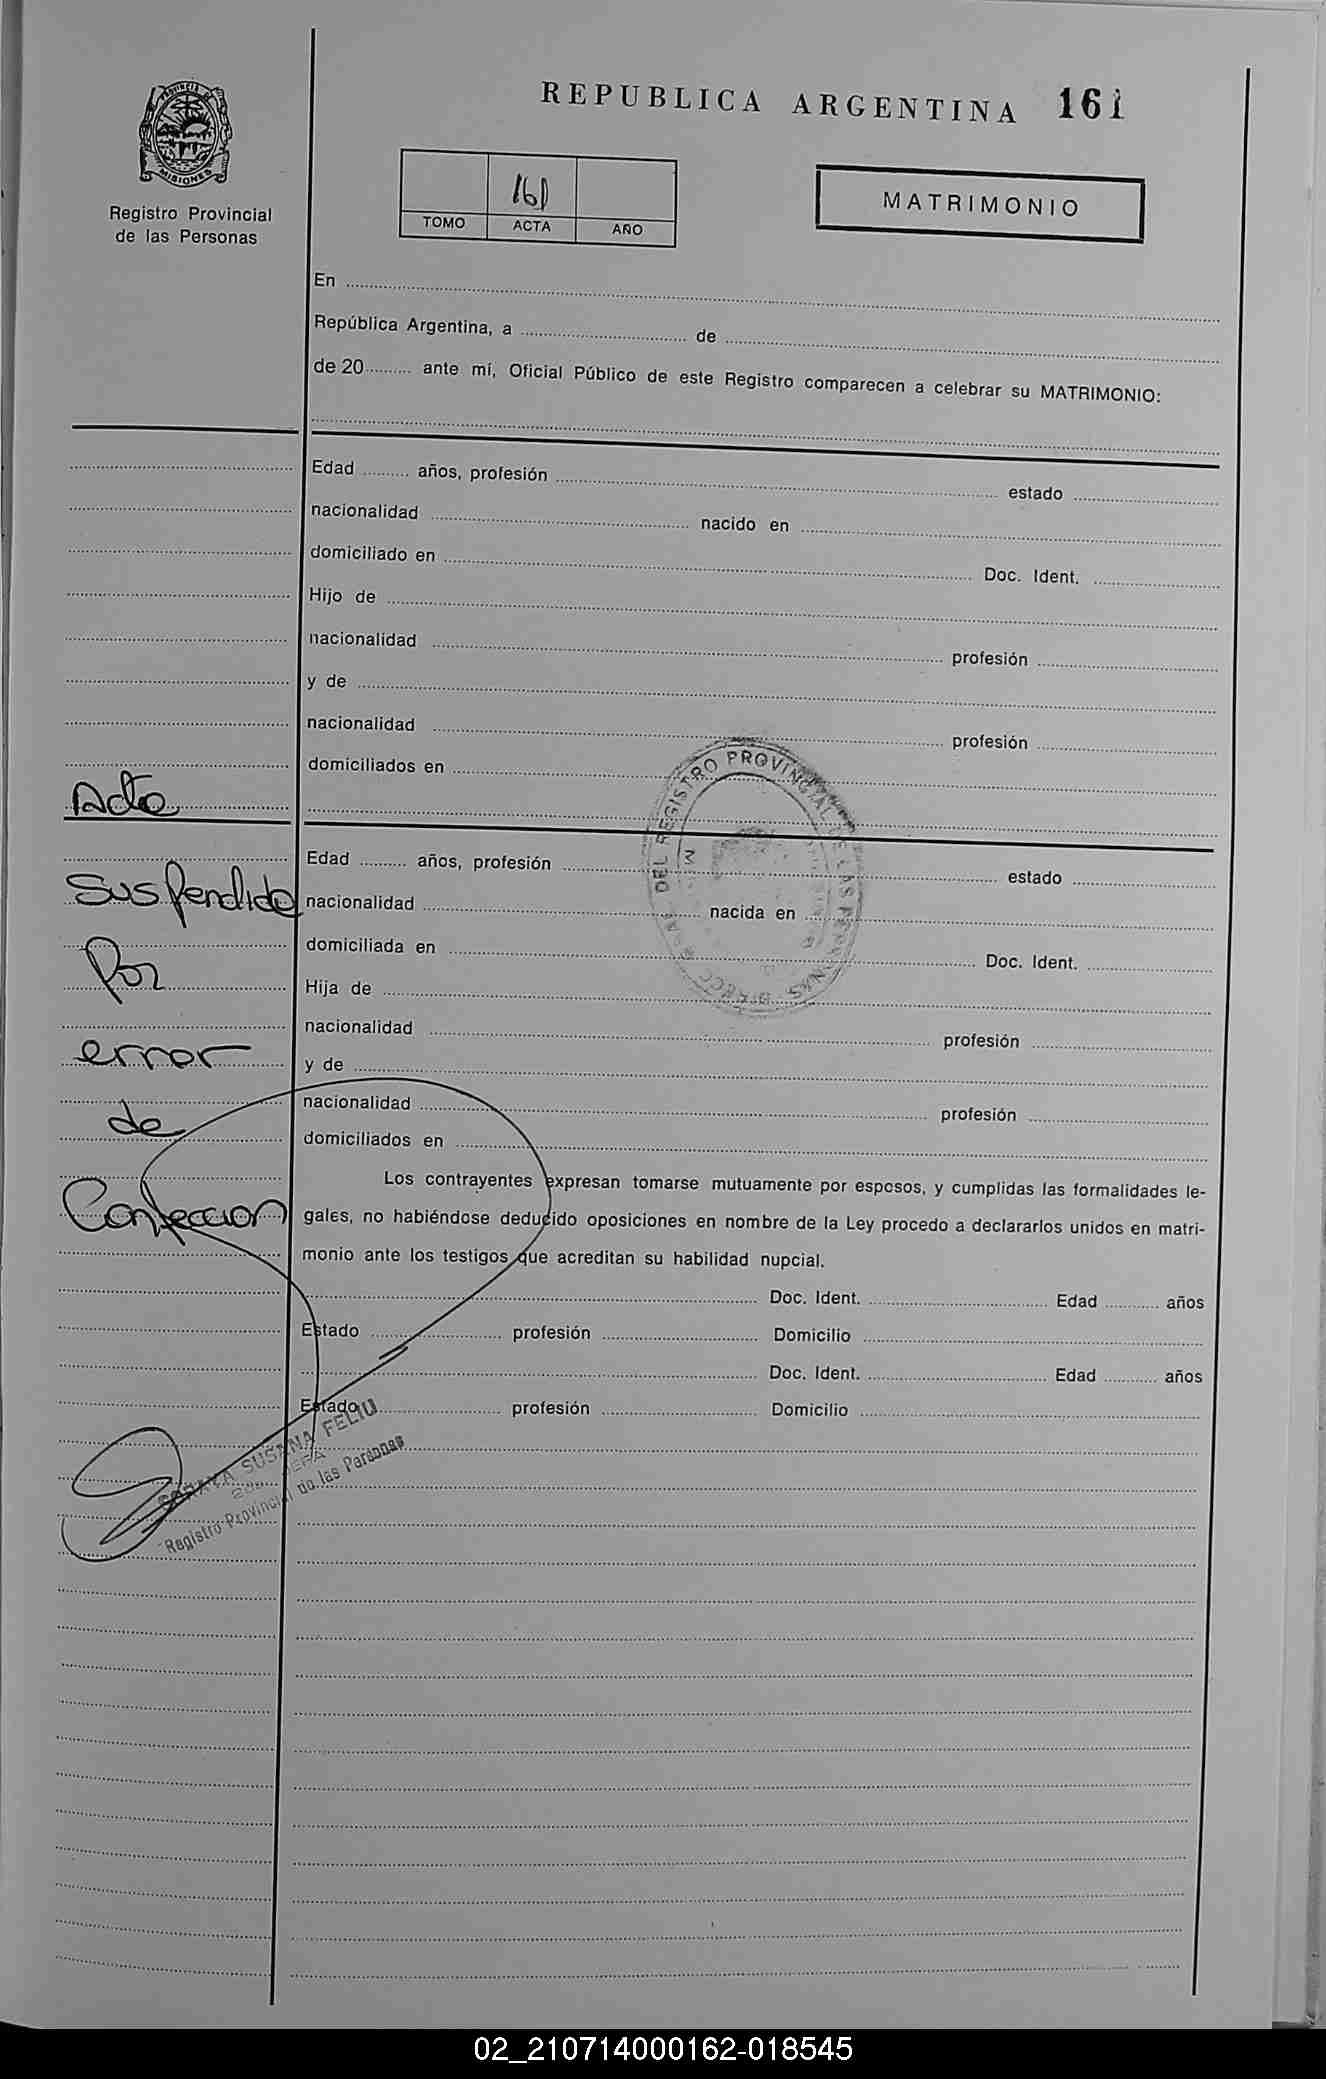 REPUBLICA ARGENTINA 161
PROVINCIA DE
MISIONES
Registro Provincial
de las Personas
161
TOMO ACTA AÑO
MATRIMONIO
En
República Argentina, a de
de 20 ante mí, Oficial Público de este Registro comparecen a celebrar su MATRIMONIO:
Edad años, profesión estado
nacionalidad nacido en
domiciliado en Doc. Ident.
Hijo de
nacionalidad profesión
y de
nacionalidad profesión
domiciliados en
DEL REGISTRO PROVINCIAL DE LAS PERSONAS
Acto
Edad años, profesión estado
Suspendido
nacionalidad nacida en
domiciliada en Doc. Ident.
Por
Hija de
nacionalidad profesión
error
y de
nacionalidad profesión
de
domiciliados en
Los contrayentes expresan tomarse mutuamente por esposos, y cumplidas las formalidades le-
Confeccion
gales, no habiéndose deducido oposiciones en nombre de la Ley procedo a declararlos unidos en matri-
monio ante los testigos que acreditan su habilidad nupcial.
Doc. Ident. Edad años
Estado profesión Domicilio
Doc. Ident. Edad años
Estado profesión Domicilio
SUSANA FELIU
JEFA
Registro Provincial de las Personas
02_210714000162-018545